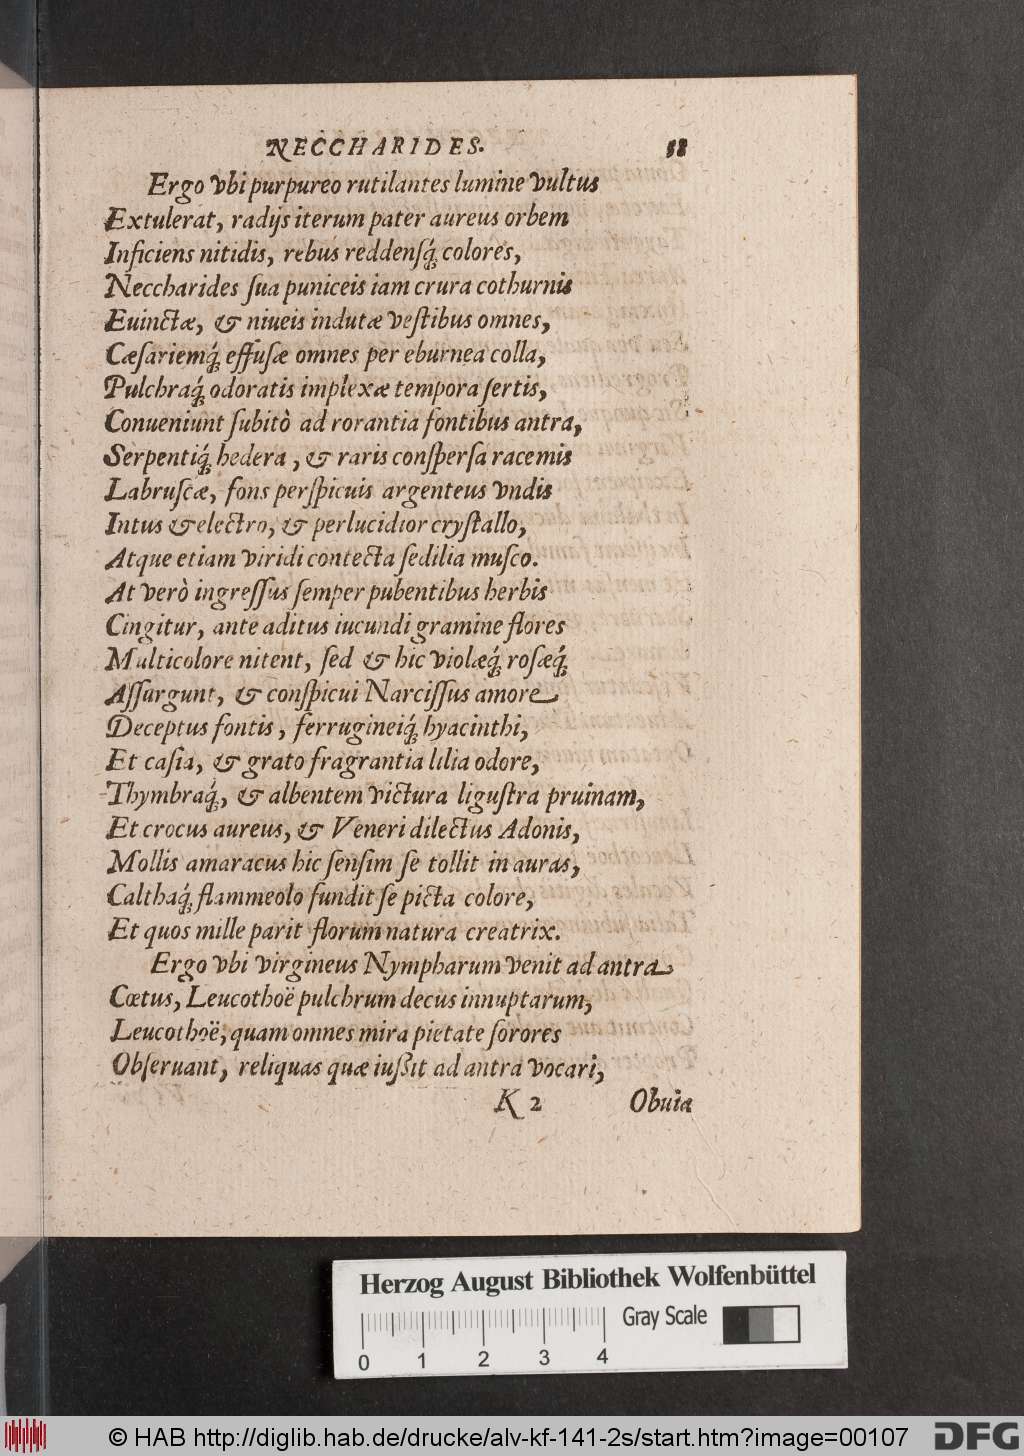 NECCHARIDES. 58
Ergo vbi purpureo rutilantes lumine vultus
Extulerat, radijs iterum pater aureus orbem
Inficiens nitidis, rebus reddensq́; colores,
Neccharides ſua puniceis iam crura cothurnis
Euinctæ, & niueis indutæ veſtibus omnes,
Cæſariemq́; effuſæ omnes per eburnea colla,
Pulchraq́; odoratis implexæ tempora ſertis,
Conueniunt ſubitò ad rorantia fontibus antra,
Serpentiq́; hedera, & raris conſperſa racemis
Labruſcæ, fons perſpicuis argenteus vndis
Intus & electro, & perlucidior cryſtallo,
Atque etiam viridi contecta ſedilia muſco.
At verò ingreſſus ſemper pubentibus herbis
Cingitur, ante aditus iucundi gramine flores
Multicolore nitent, ſed & hic violæq́; roſæq́;
Aſſurgunt, & conſpicui Narciſſus amore
Deceptus fontis, ferrugineiq́; hyacinthi,
Et caſia, & grato fragrantia lilia odore,
Thymbraq́;, & albentem victura liguſtra pruinam,
Et crocus aureus, & Veneri dilectus Adonis,
Mollis amaracus hic ſenſim ſe tollit in auras,
Calthaq́; flammeolo fundit ſe picta colore,
Et quos mille parit florum natura creatrix.
Ergo vbi virgineus Nympharum venit ad antra
Cœtus, Leucothoë pulchrum decus innuptarum,
Leucothoë, quam omnes mira pietate ſorores
Obſeruant, reliquas quæ iußit ad antra vocari,
K 2 Obuia
Herzog August Bibliothek Wolfenbüttel
Gray Scale
0 1 2 3 4
© HAB http://diglib.hab.de/drucke/alv-kf-141-2s/start.htm?image=00107 DFG